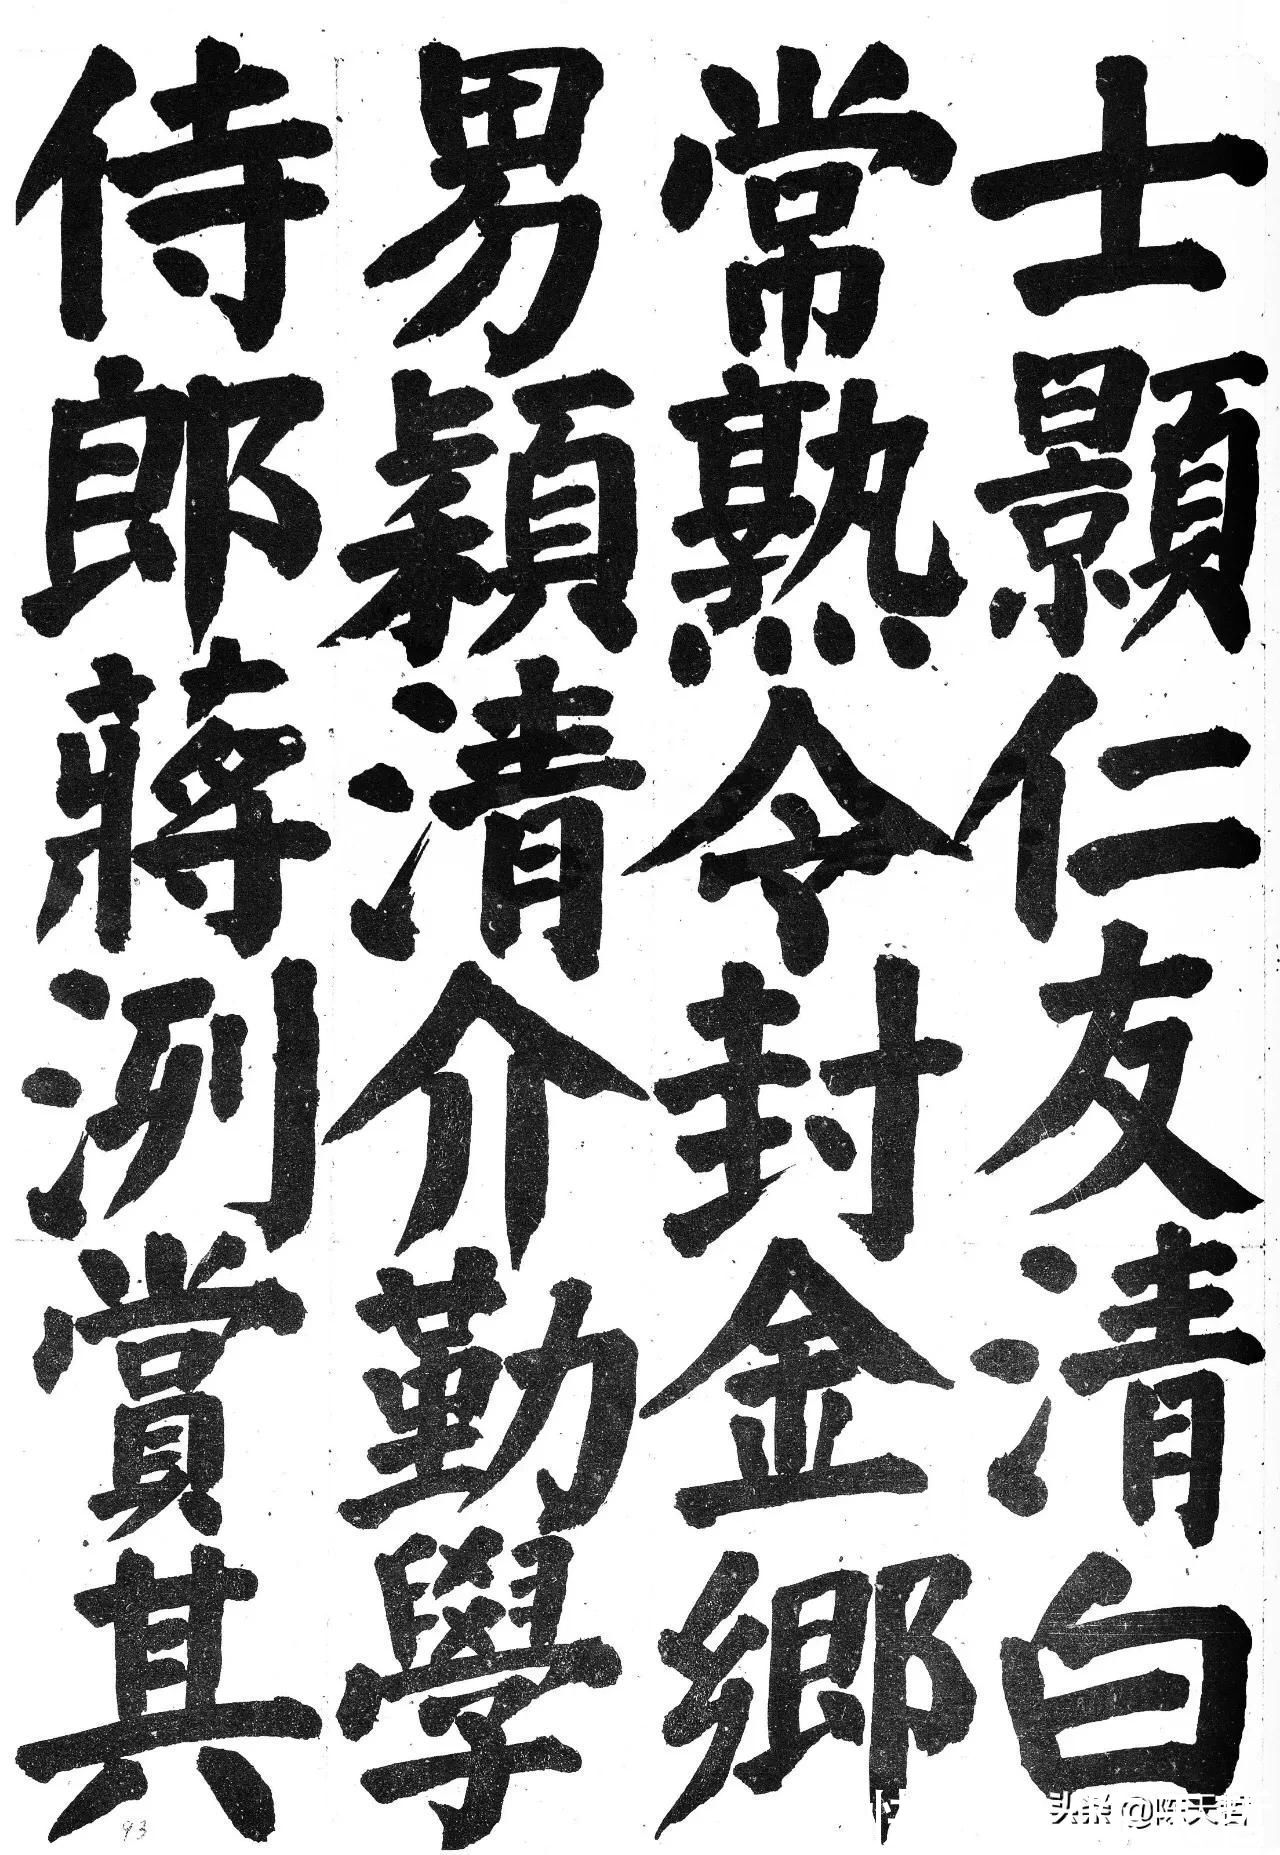 士顥仁友清白
常熟令封金鄉
男穎清介勤學
侍郎蔣洌賞其
93
头条